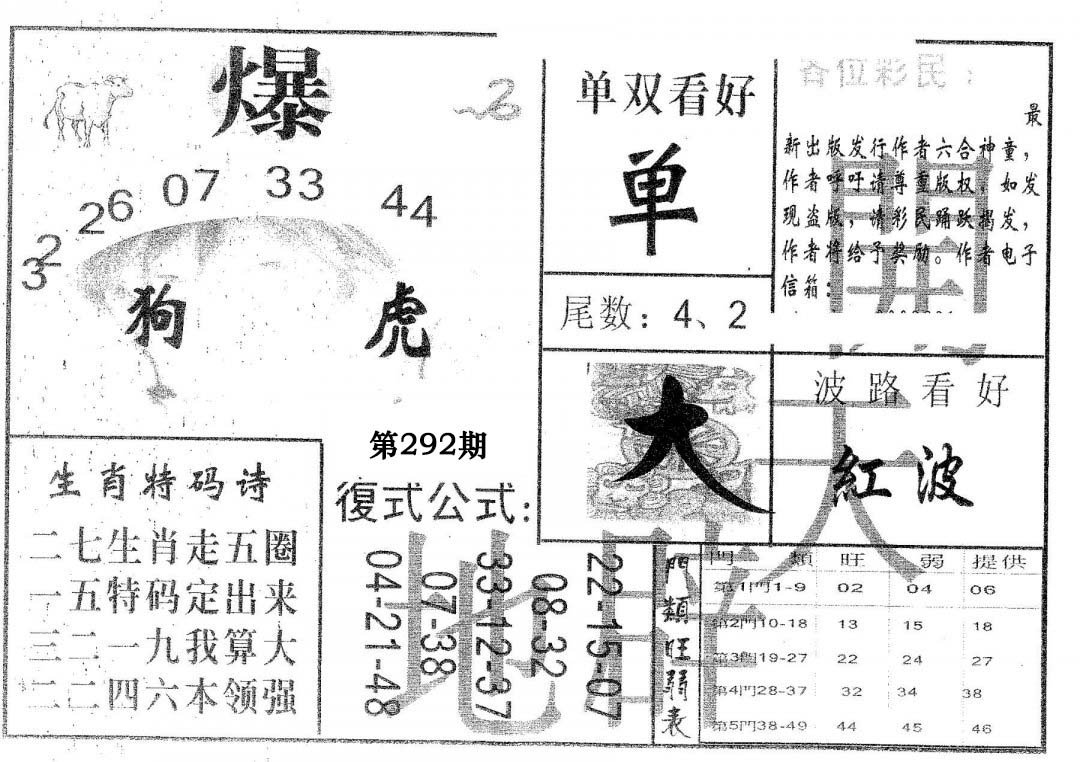 爆
32
26
07
33
44
狗
虎
单双看好
单
尾数：4、2
各位彩民：
最
新出版发行作者六合神童，
作者呼吁请尊重版权，如发
现盗版，请彩民踊跃揭发，
作者将给予奖励。作者电子
信箱：
大
波路看好
紅波
第292期
生肖特码诗
二七生肖走五圈
一五特码定出来
三二一九我算大
二二四六本领强
復式公式：
04-21-48
07-38
33-12-37
08-32
22-15-07
門類旺弱表
門 類 旺 弱 提供
第1門1-9 02 04 06
第2門10-18 13 15 18
第3門19-27 22 24 27
第4門28-37 32 34 38
第5門38-49 44 45 46